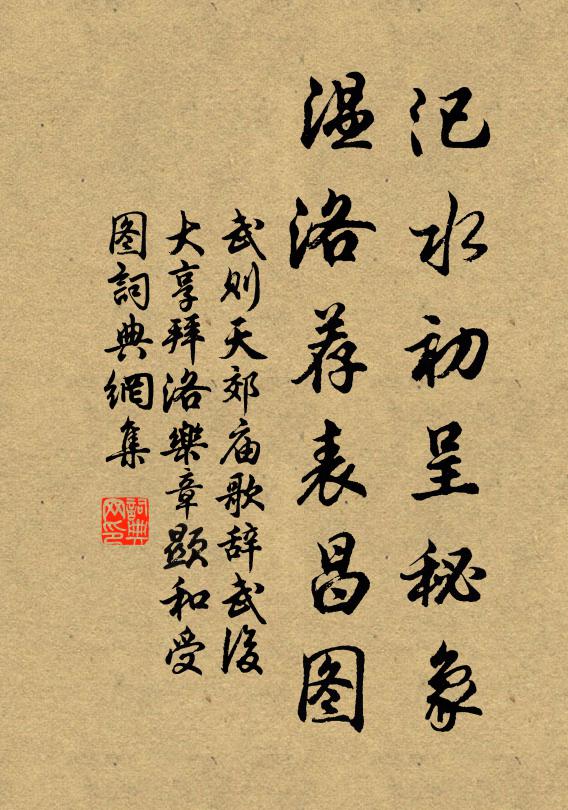 汜水初呈秘象
温洛荐表昌图
武则天郊庙歌辞武後
大享拜洛樂章顯和受
图詞典網集
詞典网印